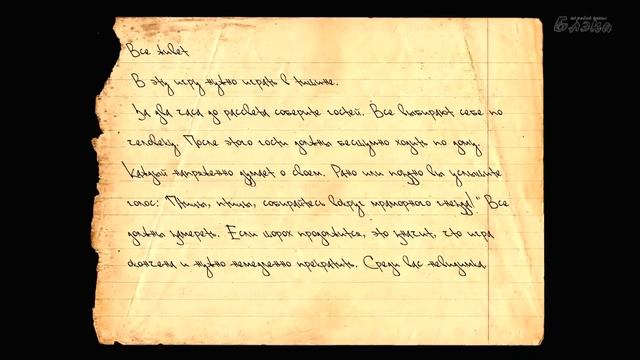 игровой канал
Блэка
Все
В эту игру нужно играть в тишине.
За два часа до рассвета соберите гостей. Все выбирают себе по
человеку. После этого гости должны бесшумно ходить по дому.
Каждый напряженно думает о своем. Рано или поздно вы услышите
голос: "Птицы, птицы, собирайтесь вокруг мраморного гнезда!" Все
должны замереть. Если шорох продолжится, это значит, что игра
окончена и нужно немедленно прекратить. Среди вас невидимка